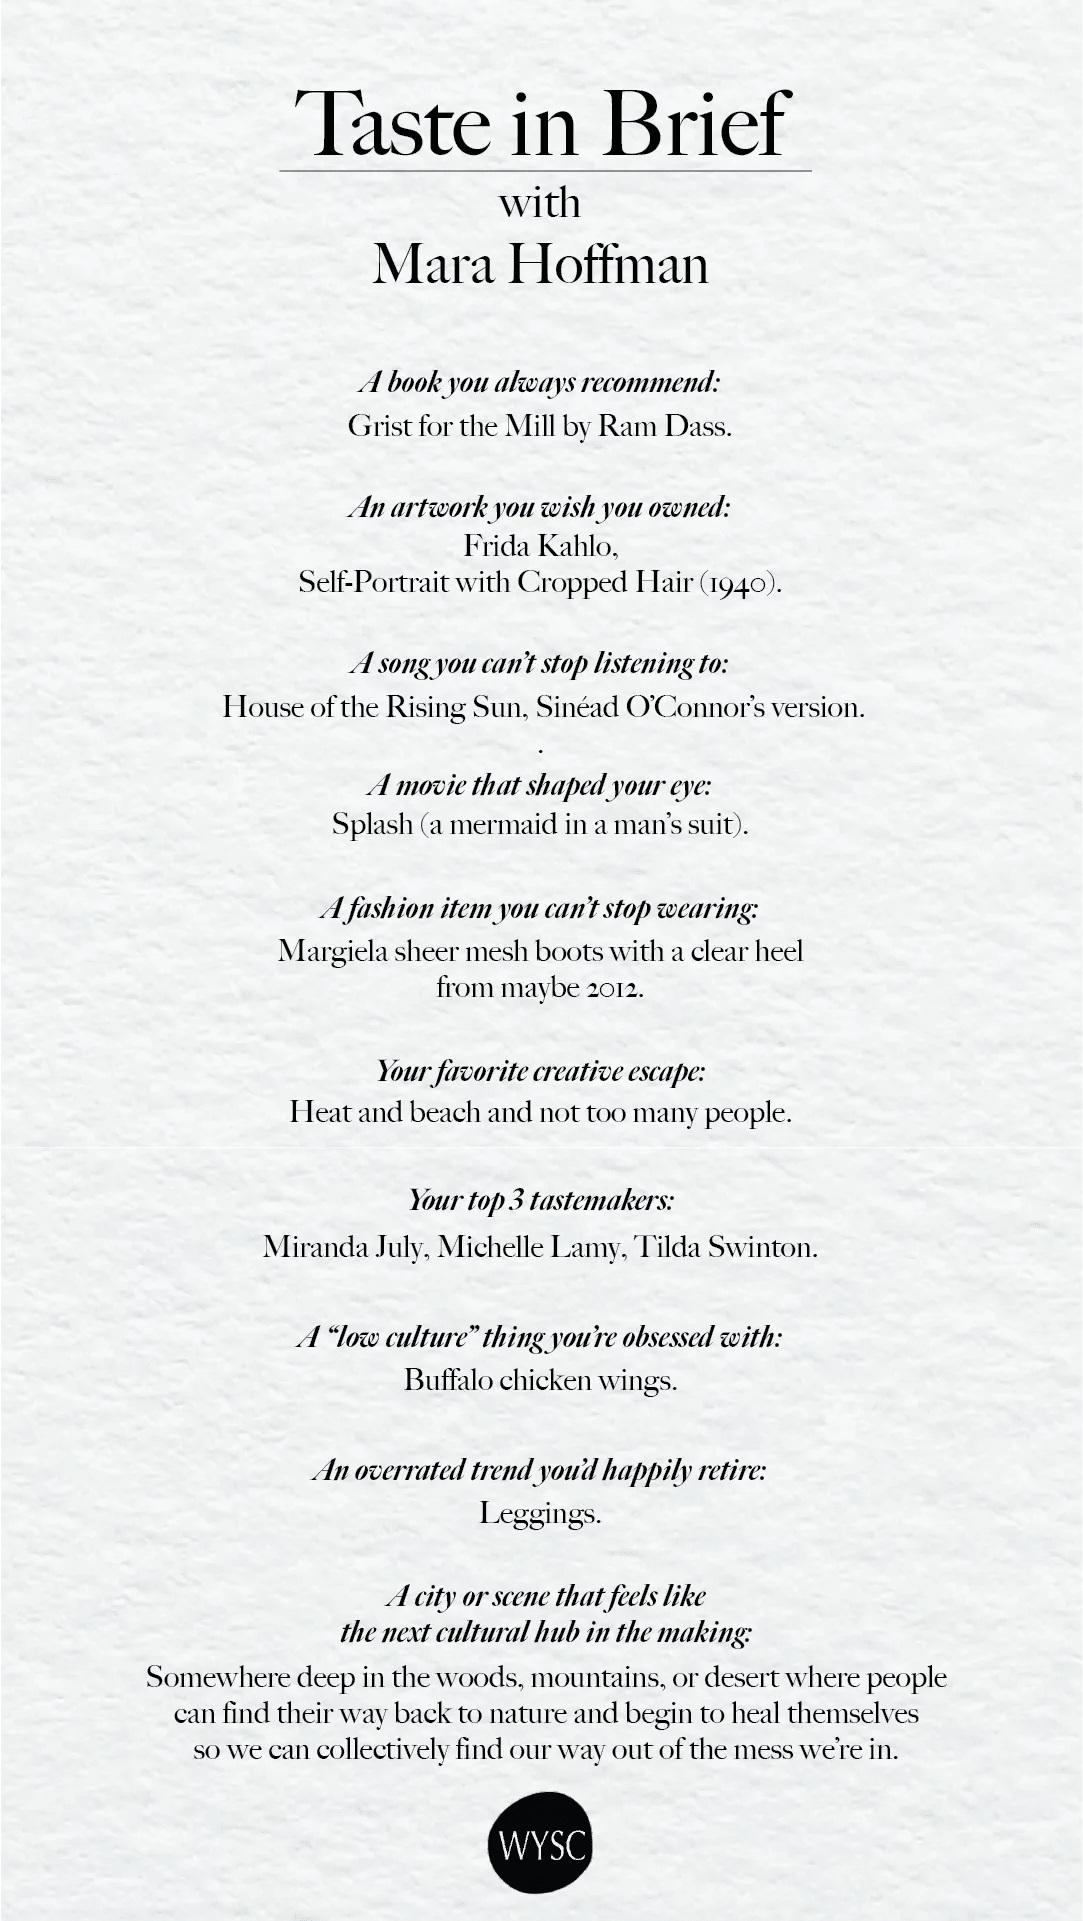 Taste in Brief
with
Mara Hoffman
A book you always recommend:
Grist for the Mill by Ram Dass.
An artwork you wish you owned:
Frida Kahlo,
Self-Portrait with Cropped Hair (1940).
A song you can’t stop listening to:
House of the Rising Sun, Sinéad O’Connor’s version.
.
A movie that shaped your eye:
Splash (a mermaid in a man’s suit).
A fashion item you can’t stop wearing:
Margiela sheer mesh boots with a clear heel
from maybe 2012.
Your favorite creative escape:
Heat and beach and not too many people.
Your top 3 tastemakers:
Miranda July, Michelle Lamy, Tilda Swinton.
A “low culture” thing you’re obsessed with:
Buffalo chicken wings.
An overrated trend you’d happily retire:
Leggings.
A city or scene that feels like
the next cultural hub in the making:
Somewhere deep in the woods, mountains, or desert where people
can find their way back to nature and begin to heal themselves
so we can collectively find our way out of the mess we’re in.
WYSC